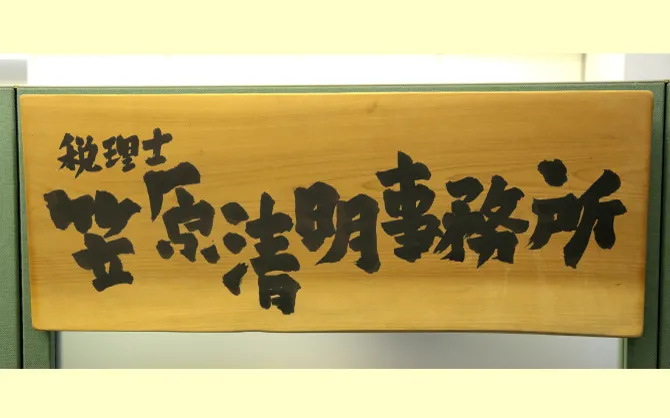 税理士
笠原清明事務所